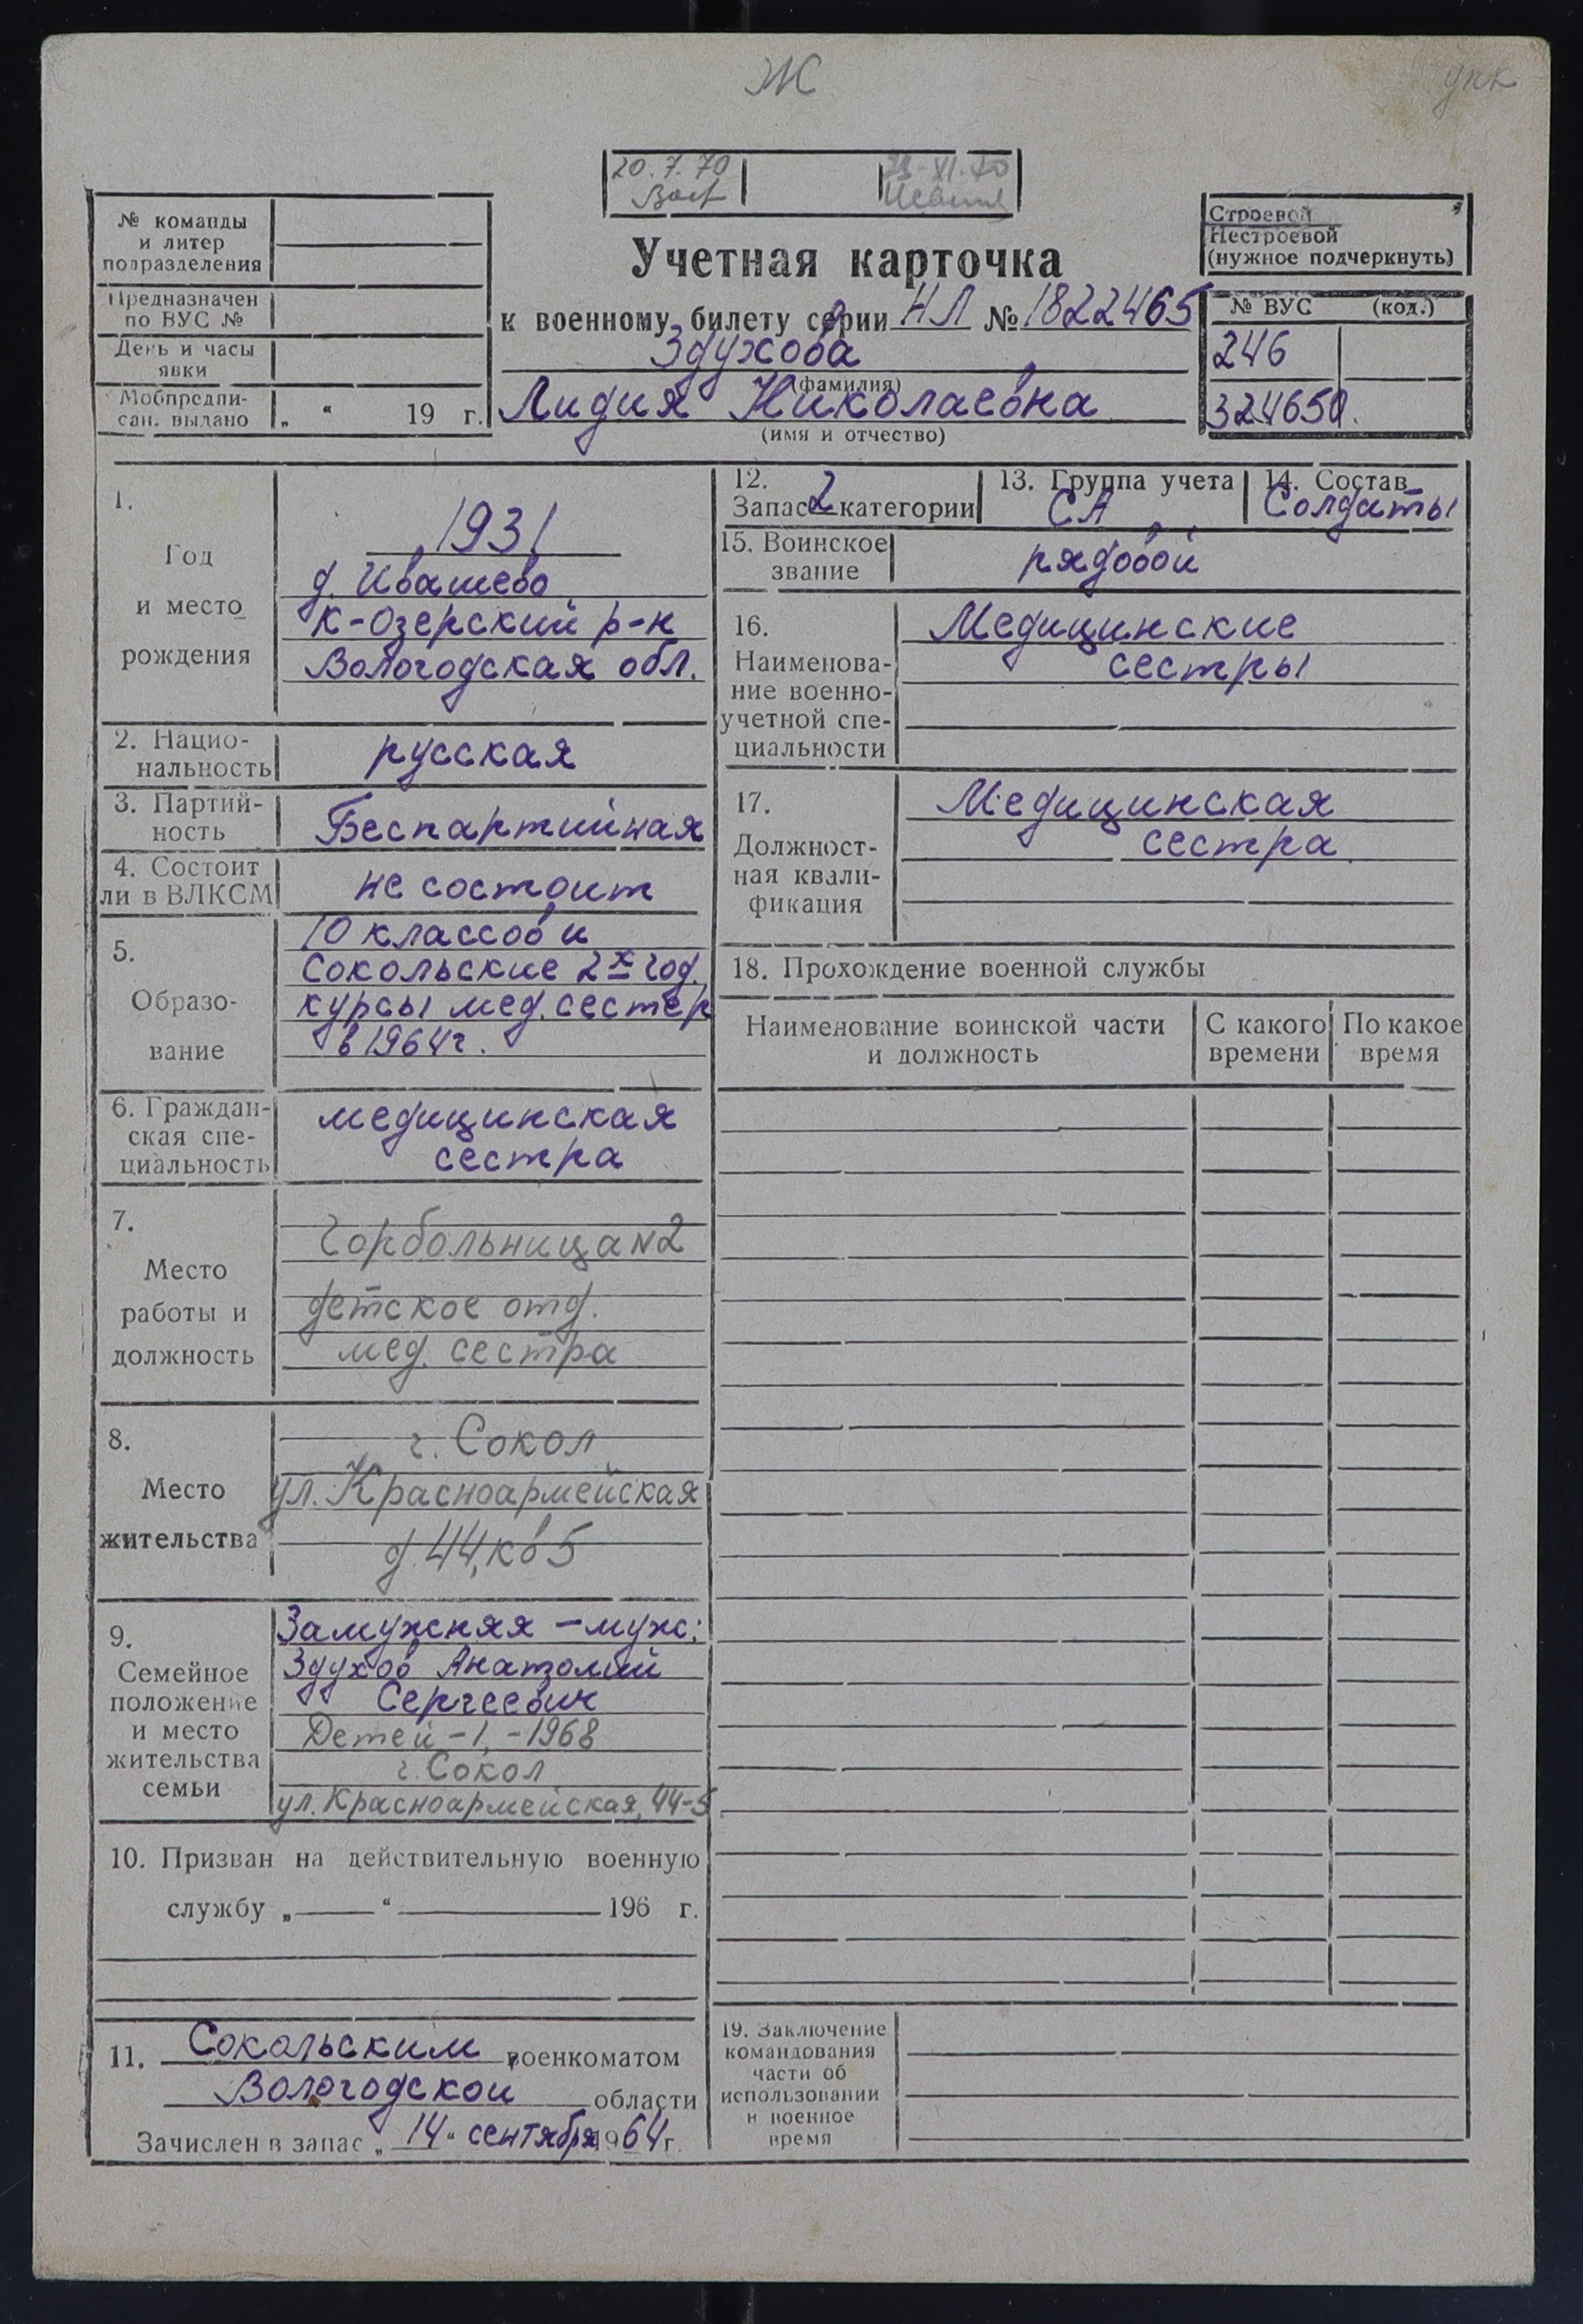 Ж
упк
20.7.70
23-XI.70
№ команды
и литер
подразделения
Предназначен
по ВУС №
День и часы
явки
Мобпредпи-
сан. выдано „ “ 19 г.
Учетная карточка
к военному билету серии НЛ № 1822465
Здухова
(фамилия)
Лидия Николаевна
(имя и отчество)
Строевой
Нестроевой
(нужное подчеркнуть)
№ ВУС (код.)
246
324650.
1.
Год
и место
рождения
1931
д. Ивашево
К-Озерский р-н
Вологодская обл.
2. Нацио-
нальность
русская
3. Партий-
ность
Беспартийная
4. Состоит
ли в ВЛКСМ
не состоит
5.
Образо-
вание
10 классов и
Сокольские 2х год.
курсы мед. сестер
в 1964г.
6. Граждан-
ская спе-
циальность
медицинская
сестра
7.
Место
работы и
должность
Горбольница N2
детское отд.
мед. сестра
8.
Место
жительства
г. Сокол
ул. Красноармейская
д. 44, кв 5
9.
Семейное
положение
и место
жительства
семьи
Замужняя - муж:
Здухов Анатолий
Сергеевич
Детей - 1, - 1968
г. Сокол
ул. Красноармейская, 44-5
10. Призван на действительную военную
службу „ “ 196 г.
11. Сокольским военкоматом
Вологодской области
Зачислен в запас „ 14 “ сентября 1964 г.
12.
Запас 2 категории
13. Группа учета
СА
14. Состав
Солдаты
15. Воинское
звание
рядовой
16.
Наименова-
ние военно-
учетной спе-
циальности
Медицинские
сестры
17.
Должност-
ная квали-
фикация
Медицинская
сестра
18. Прохождение военной службы
Наименование воинской части
и должность
С какого
времени
По какое
время
19. Заключение
командования
части об
использовании
в военное
время